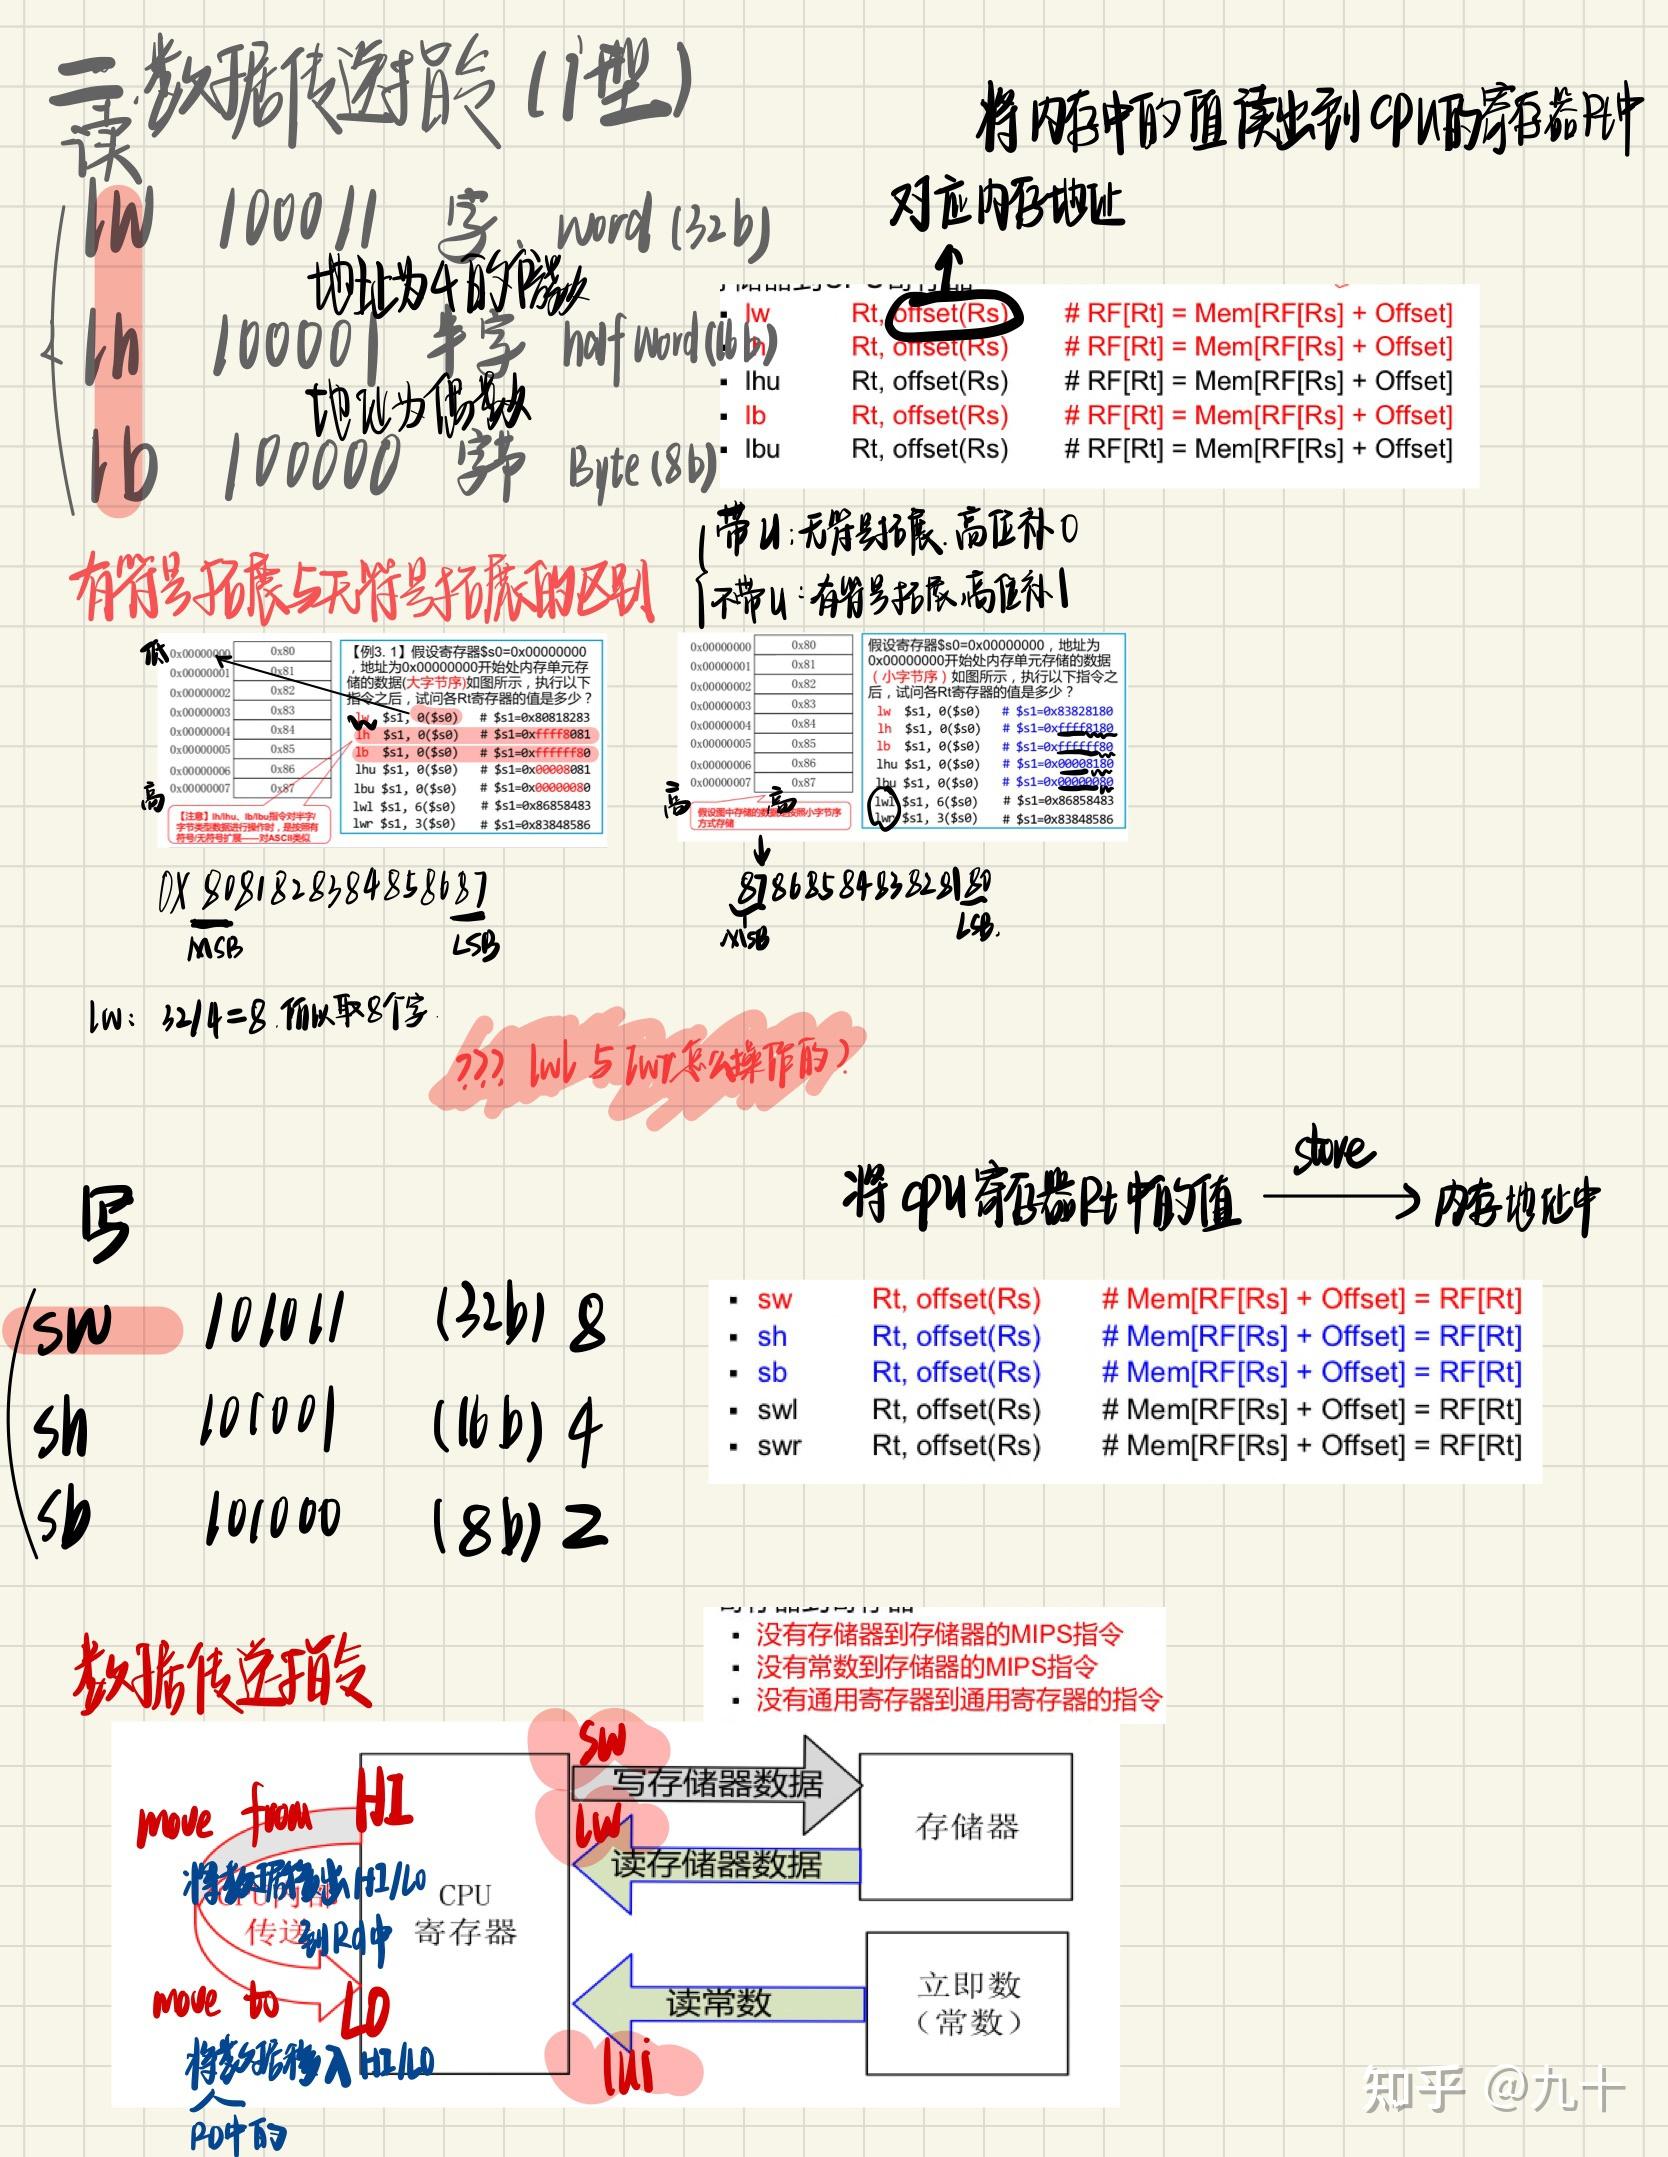 二.数据传送指令(i型)
读
将内存中的值读出到CPU的寄存器Rt中
对应内存地址
lw 100011 字 word (32b)
地址为4的倍数
lh 100001 半字 half word (16b)
地址为偶数
lb 100000 字节 Byte (8b)
lw Rt, offset(Rs) # RF[Rt] = Mem[RF[Rs] + Offset]
h Rt, offset(Rs) # RF[Rt] = Mem[RF[Rs] + Offset]
lhu Rt, offset(Rs) # RF[Rt] = Mem[RF[Rs] + Offset]
lb Rt, offset(Rs) # RF[Rt] = Mem[RF[Rs] + Offset]
lbu Rt, offset(Rs) # RF[Rt] = Mem[RF[Rs] + Offset]
带u:无符号拓展.高位补0
不带u:有符号拓展.高位补1
有符号拓展与无符号拓展的区别
低
0x00000000 0x80
0x00000001 0x81
0x00000002 0x82
0x00000003 0x83
0x00000004 0x84
0x00000005 0x85
0x00000006 0x86
0x00000007 0x87
高
【注意】lh/lhu、lb/lbu指令对半字/
字节类型数据进行操作时，是按照有
符号/无符号扩展——对ASCII类似
【例3. 1】假设寄存器$s0=0x00000000
，地址为0x00000000开始处内存单元存
储的数据(大字节序)如图所示，执行以下
指令之后，试问各Rt寄存器的值是多少？
lw $s1, 0($s0) # $s1=0x80818283
lh $s1, 0($s0) # $s1=0xffff8081
lb $s1, 0($s0) # $s1=0xffffff80
lhu $s1, 0($s0) # $s1=0x00008081
lbu $s1, 0($s0) # $s1=0x00000080
lwl $s1, 6($s0) # $s1=0x86858483
lwr $s1, 3($s0) # $s1=0x83848586
0x00000000 0x80
0x00000001 0x81
0x00000002 0x82
0x00000003 0x83
0x00000004 0x84
0x00000005 0x85
0x00000006 0x86
0x00000007 0x87
高 高
假设图中存储的数据是按照小字节序
方式存储
假设寄存器$s0=0x00000000，地址为
0x00000000开始处内存单元存储的数据
（小字节序）如图所示，执行以下指令之
后，试问各Rt寄存器的值是多少？
lw $s1, 0($s0) # $s1=0x83828180
lh $s1, 0($s0) # $s1=0xffff8180
lb $s1, 0($s0) # $s1=0xffffff80
lhu $s1, 0($s0) # $s1=0x00008180
lbu $s1, 0($s0) # $s1=0x00000080
lwl $s1, 6($s0) # $s1=0x86858483
lwr $s1, 3($s0) # $s1=0x83848586
0X 8081828384858687
MSB LSB
8786858483828180
MSB LSB.
lw: 32/4=8.所以取8个字.
??? lwl 与 lwr怎么操作的?
写
将CPU寄存器Rt中的值 store 内存地址中
sw 101011 (32b) 8
sh 101001 (16b) 4
sb 101000 (8b) 2
sw Rt, offset(Rs) # Mem[RF[Rs] + Offset] = RF[Rt]
sh Rt, offset(Rs) # Mem[RF[Rs] + Offset] = RF[Rt]
sb Rt, offset(Rs) # Mem[RF[Rs] + Offset] = RF[Rt]
swl Rt, offset(Rs) # Mem[RF[Rs] + Offset] = RF[Rt]
swr Rt, offset(Rs) # Mem[RF[Rs] + Offset] = RF[Rt]
数据传送指令
没有存储器到存储器的MIPS指令
没有常数到存储器的MIPS指令
没有通用寄存器到通用寄存器的指令
sw
写存储器数据
move from HI
lw
存储器
读存储器数据
将数据移出HI/LO
到Rd中
CPU内部
传送
CPU
寄存器
move to LO
读常数
立即数
（常数）
将数据移入HI/LO
RD中的
lui
知乎 @九十